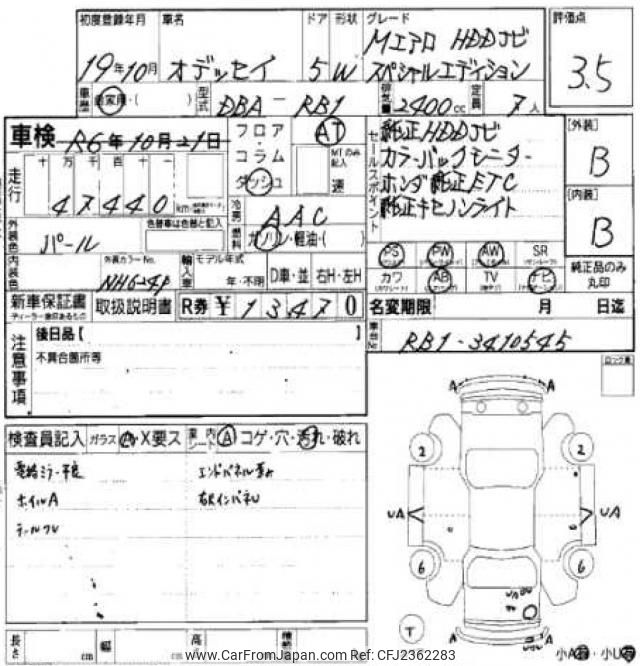 初度登録年月 車名 ドア 形状 グレード 評価点
19年10月 オデッセイ 5 W Mエアロ HDDナビ
スペシャルエディション 3.5
車歴 自家用・( ) 型式 DBA-RB1 排気量 2400cc 定員 7人
車検 R6年10月21日 フロア AT
・コラム・ダッシュ MTのみ記入 速
セールスポイント
純正HDDナビ
カラーバックモニター
ホンダ純正ETC
純正キセノンライト
[外装] B
[内装] B
走行 十 万 千 百 十 一
47440 km
冷房 AAC
外装色 パール 色替車は色替と記入 燃料 ガソリン・軽油・( )
内装色 外装カラーNo. NH624P 輸入車 モデル年式 年・不明 D車・並 右H・左H
PS PW AW SR
カワ AB TV ナビ
純正品のみ丸印
新車保証書 取扱説明書 R券 ¥ 13470
ディーラー捺印あるもの
名変期限 月 日迄
車台No RB1-3410545
注意事項 後日品 [ ]
不具合箇所等
検査員記入 ガラス A・X要ス 室内 シート A コゲ・穴・汚れ・破れ
電格ミラー不良 エンドパネル歪み
ホイルA 右RインパネU
テールワレ
A A
2 2
UA UA
6 6
T
A A
長さ cm 幅 cm 高
小A有・小U有
www.CarFromJapan.com Ref: CFJ2362283